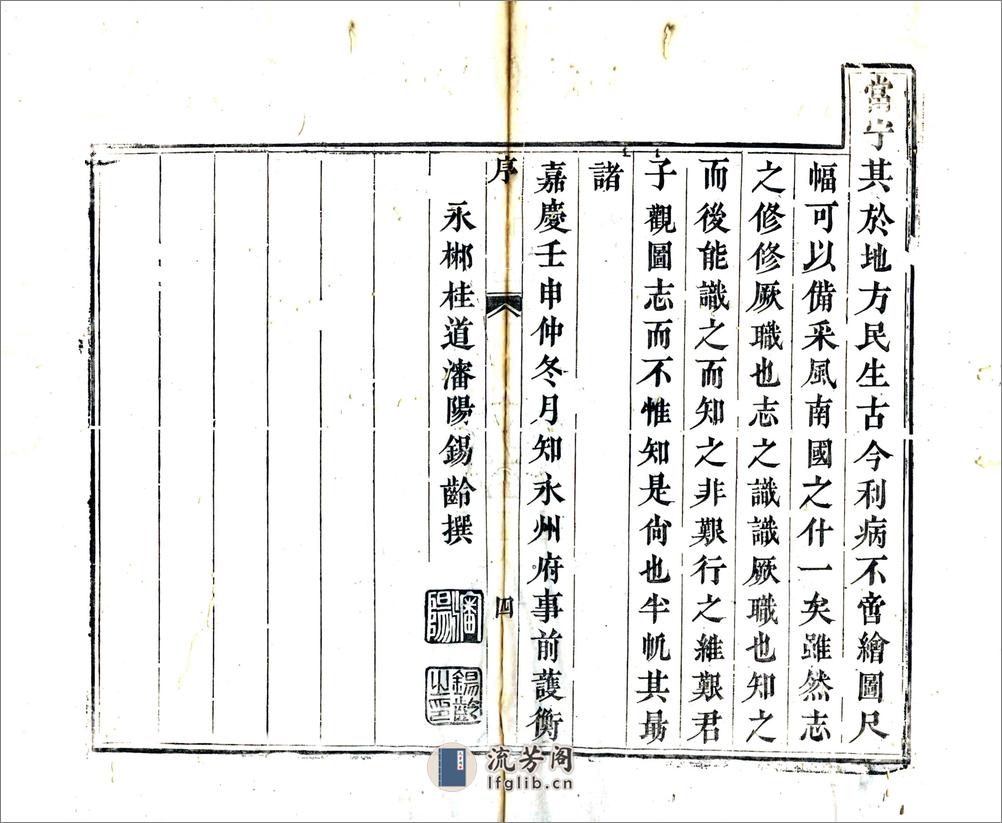 當宁其於地方民生古今利病不啻繪圖尺
幅可以備采風南國之什一矣雖然志
之修修厥職也志之識識厥職也知之
而後能識之而知之非艱行之維艱君
子觀圖志而不惟知是尙也牛帆其勗
諸
嘉慶壬申仲冬月知永州府事前護衡
序
四
永郴桂道瀋陽錫齡撰
瀋陽
錫齡之印
流芳阁
lfglib.cn